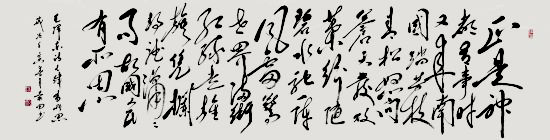 正是神
都有事时
又来南
国踏芳枝
青松怒向
苍天发败
叶纷随
碧水驰一阵
风雷惊
世界满街
红绿走旌
旗凭栏
静听潇潇
雨故国人民
有所思
毛泽东诗七律有所思